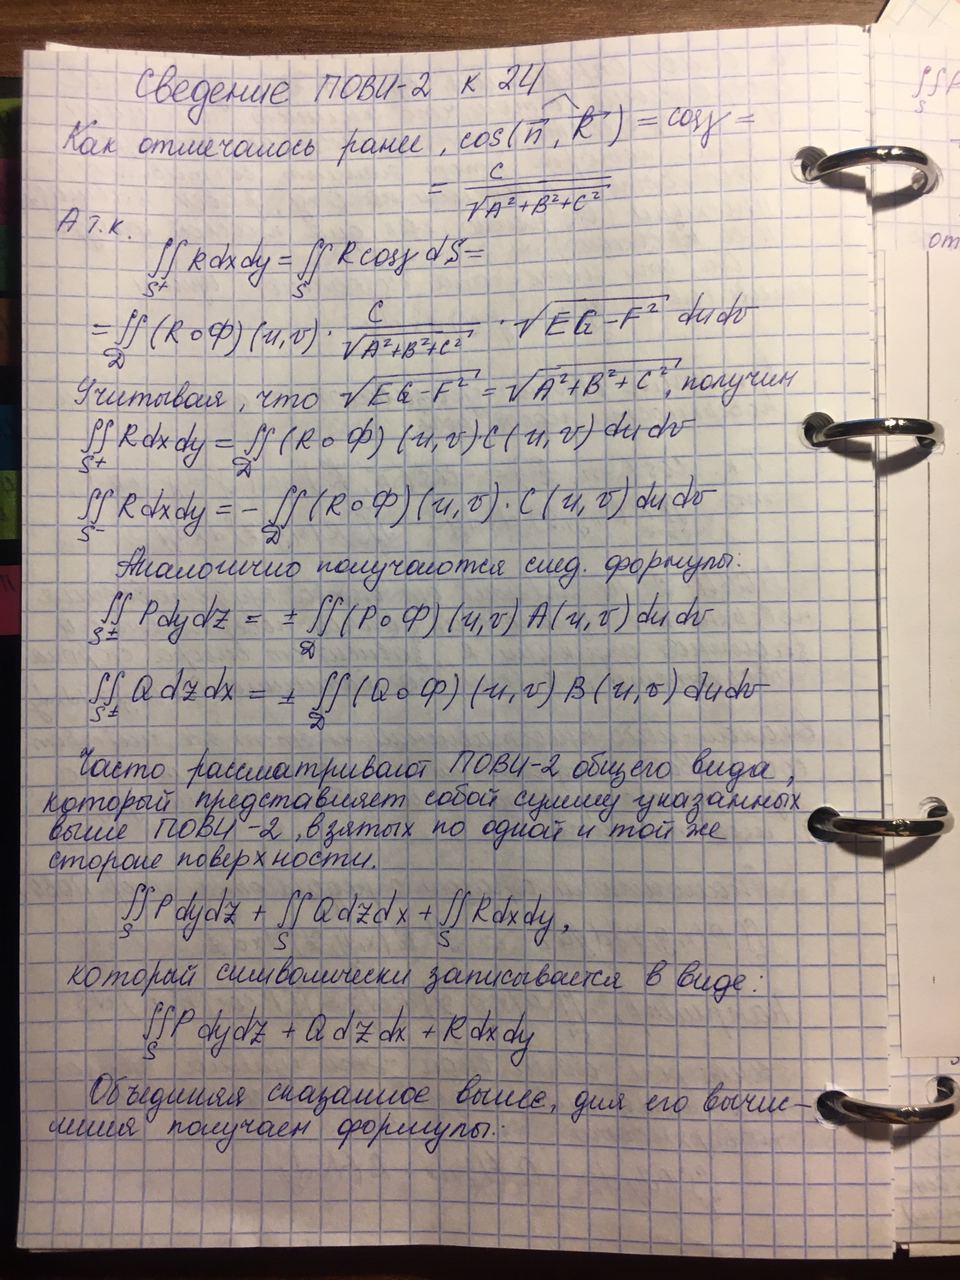 Сведение ПОВИ-2 к 2И
Как отмечалось ранее, cos(n⃗, k⃗) = cosγ =
= C / √(A²+B²+C²)
А т.к.
∬_{S⁺} Rdxdy = ∬_S R cosγ dS =
= ∬_D (R∘Ф)(u,v) · C / √(A²+B²+C²) · √(EG-F²) dudv
Учитывая, что √(EG-F²) = √(A²+B²+C²), получим
∬_{S⁺} Rdxdy = ∬_D (R∘Ф)(u,v) C(u,v) dudv
∬_{S⁻} Rdxdy = - ∬_D (R∘Ф)(u,v) · C(u,v) dudv
Аналогично получаются след. формулы:
∬_{S±} Pdydz = ± ∬_D (P∘Ф)(u,v) A(u,v) dudv
∬_{S±} Qdzdx = ± ∬_D (Q∘Ф)(u,v) B(u,v) dudv
Часто рассматривают ПОВИ-2 общего вида,
который представляет собой сумму указанных
выше ПОВИ-2, взятых по одной и той же
стороне поверхности.
∬_S Pdydz + ∬_S Qdzdx + ∬_S Rdxdy,
который символически записывается в виде:
∬_S Pdydz + Qdzdx + Rdxdy
Объединяя сказанное выше, для его вычис-
ления получаем формулы:
∬_S P
от